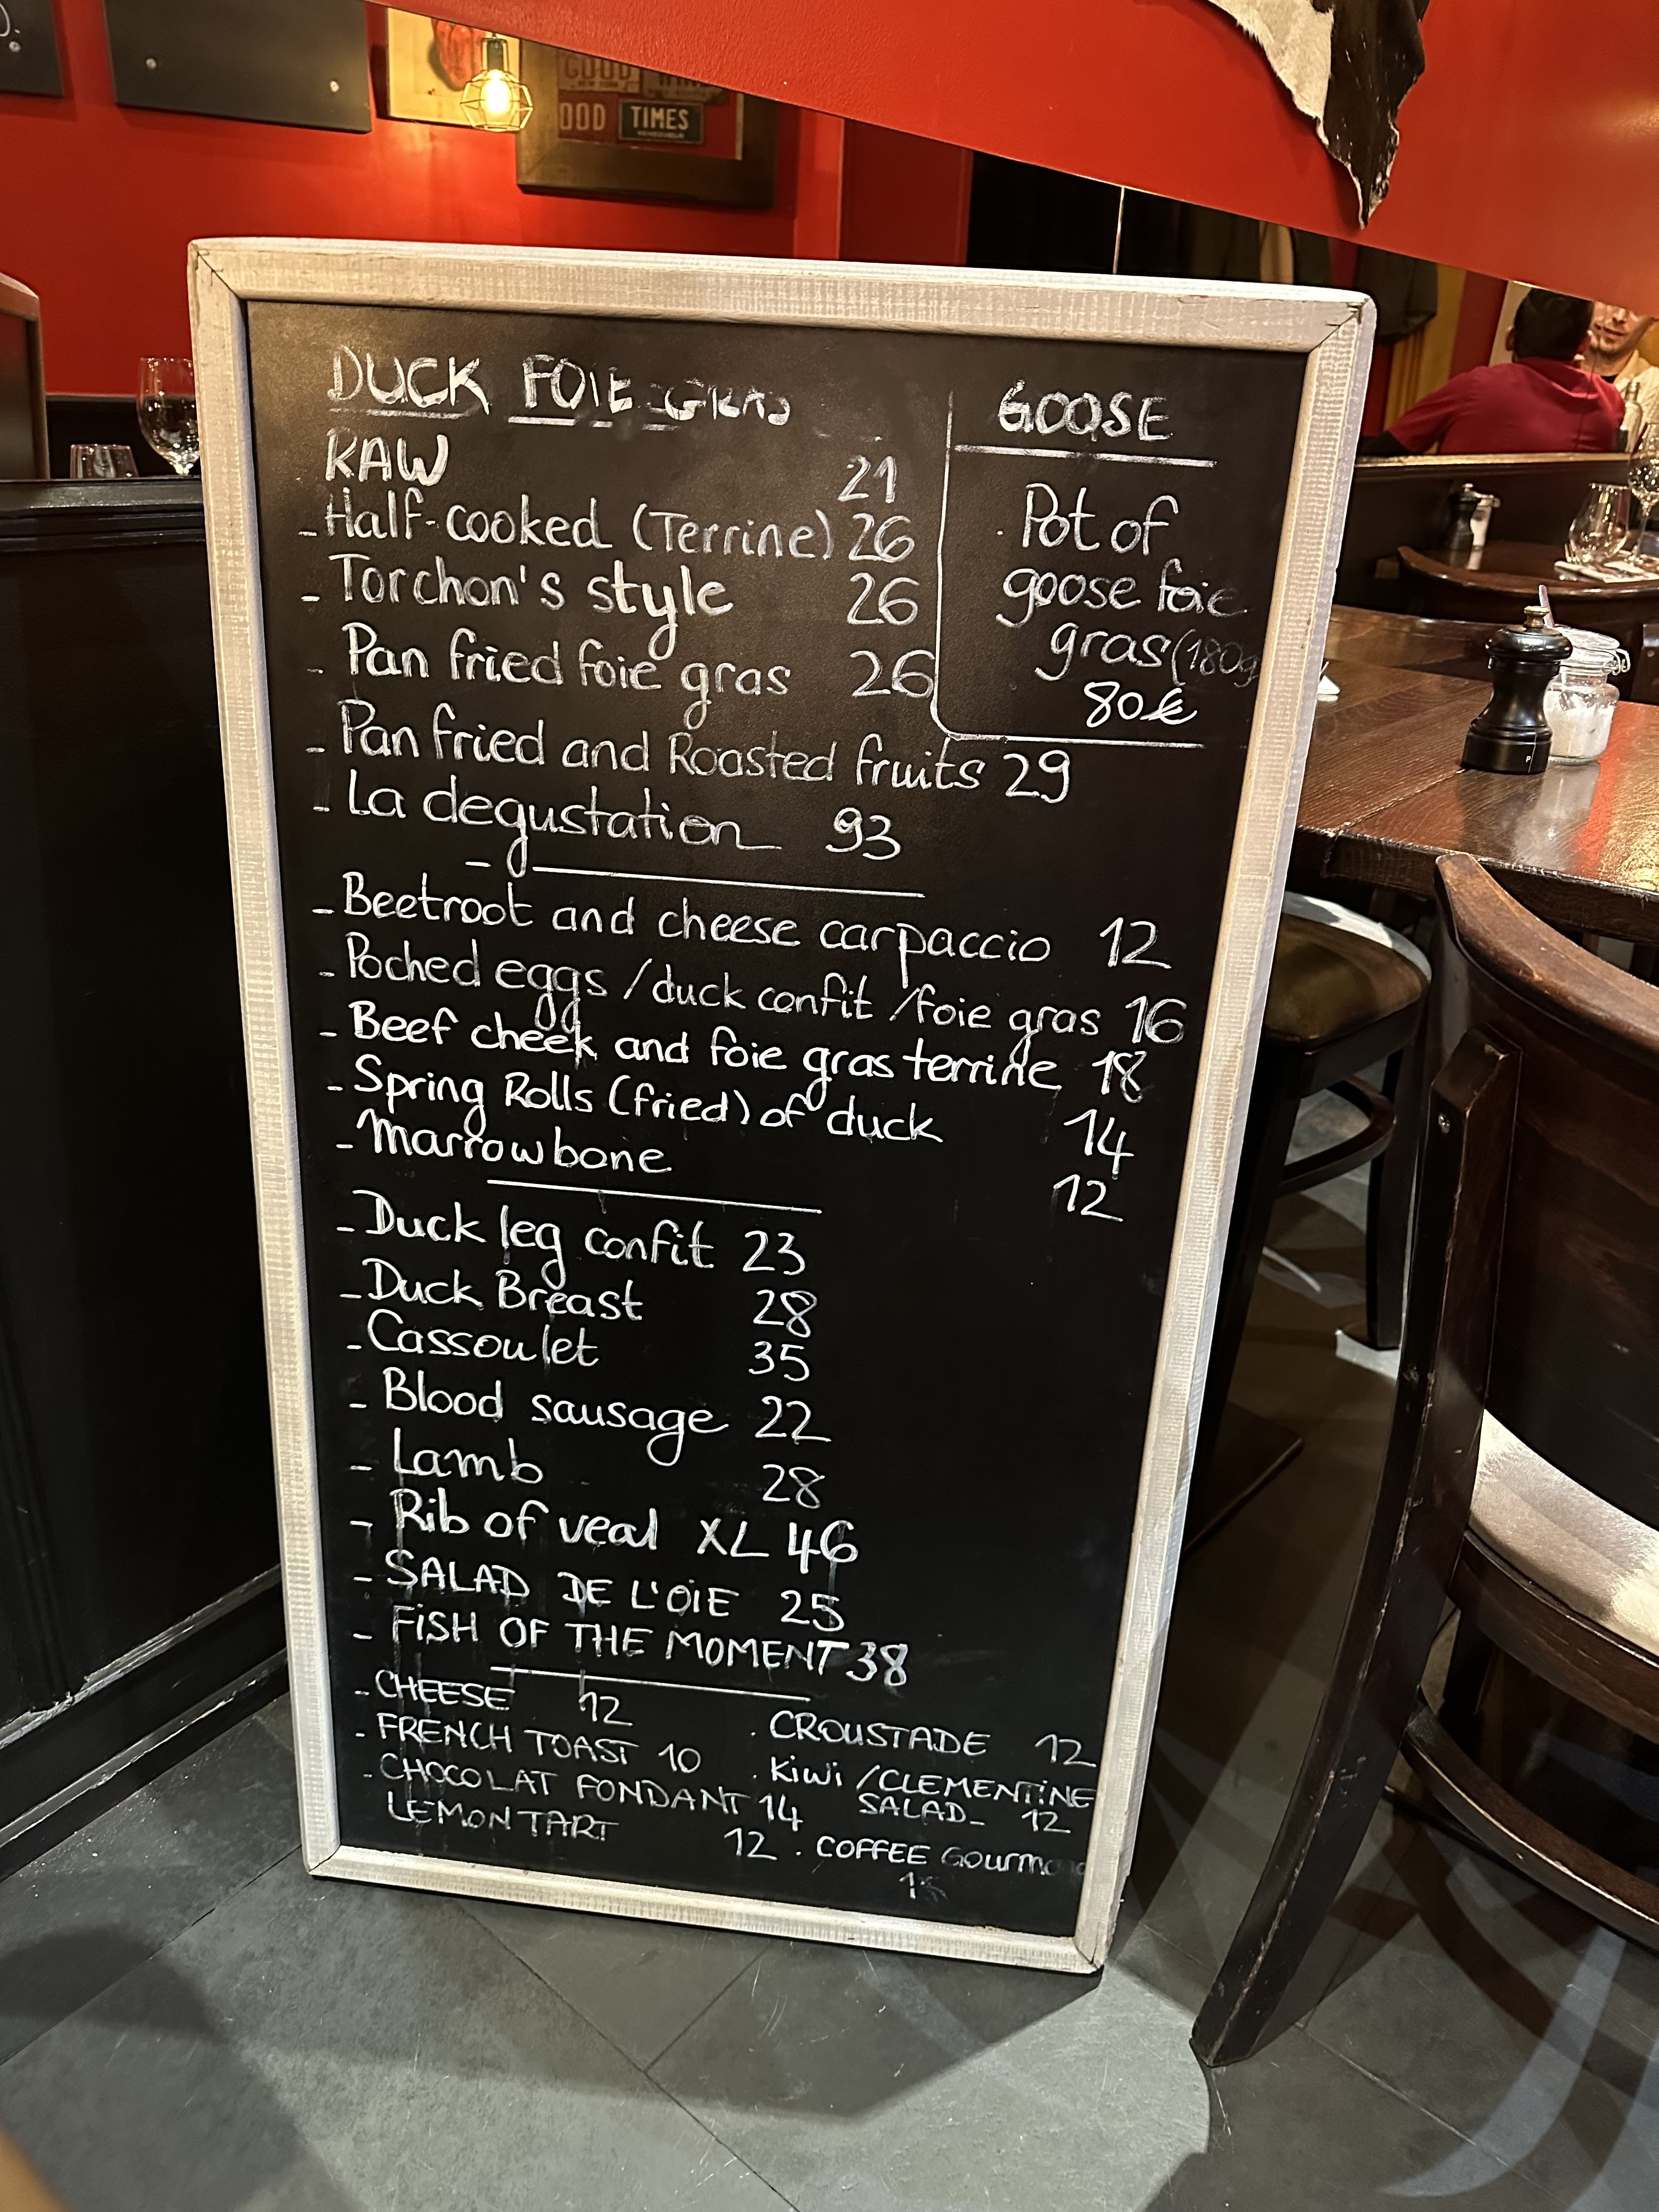 GOOD
OOD TIMES
DUCK FOIE GRAS
RAW 21
- Half-cooked (Terrine) 26
- Torchon's style 26
- Pan fried foie gras 26
- Pan fried and Roasted fruits 29
- La degustation 93
GOOSE
. Pot of
goose foie
gras (180g
80€
- Beetroot and cheese carpaccio 12
- Poched eggs / duck confit / foie gras 16
- Beef cheek and foie gras terrine 18
- Spring Rolls (fried) of duck 14
- Marrowbone 12
- Duck leg confit 23
- Duck Breast 28
- Cassoulet 35
- Blood sausage 22
- Lamb 28
- Rib of veal XL 46
- SALAD DE L'OIE 25
- FISH OF THE MOMENT 38
- CHEESE 12
- FRENCH TOAST 10
- CHOCOLAT FONDANT 14
LEMON TART 12
. CROUSTADE 12
. KIWI / CLEMENTINE
SALAD 12
. COFFEE Gourmand